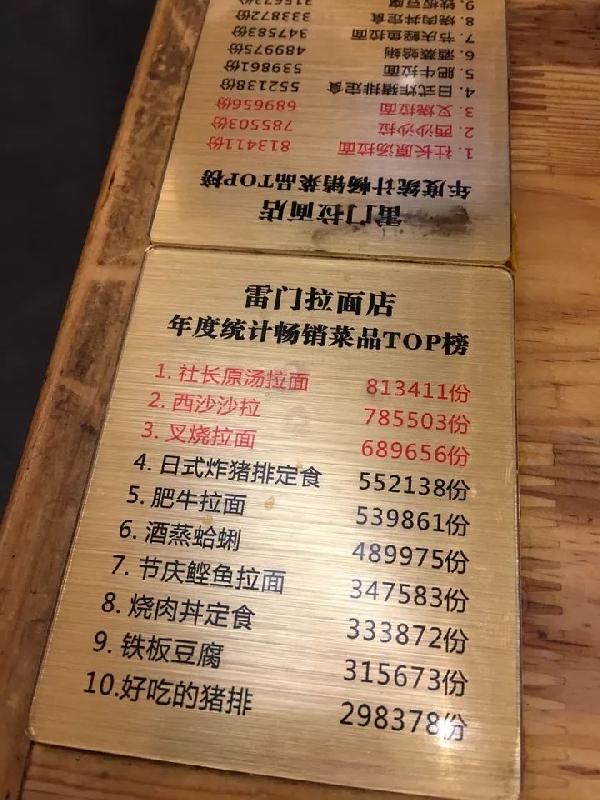 雷门拉面店
年度统计畅销菜品TOP榜
1. 社长原汤拉面 813411份
2. 西沙沙拉 785503份
3. 叉烧拉面 689656份
4. 日式炸猪排定食 552138份
5. 肥牛拉面 539861份
6. 酒蒸蛤蜊 489975份
7. 节庆鲣鱼拉面 347583份
8. 烧肉丼定食 333872份
9. 铁板豆腐 315673份
10.好吃的猪排 298378份
雷门拉面店
年度统计畅销菜品TOP榜
1. 社长原汤拉面 813411份
2. 西沙沙拉 785503份
3. 叉烧拉面 689656份
4. 日式炸猪排定食 552138份
5. 肥牛拉面 539861份
6. 酒蒸蛤蜊 489975份
7. 节庆鲣鱼拉面 347583份
8. 烧肉丼定食 333872份
9. 铁板豆腐 315673份